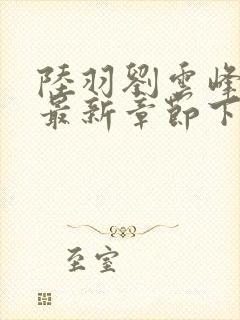 陸羽劉雲峰
最新章節下
至室